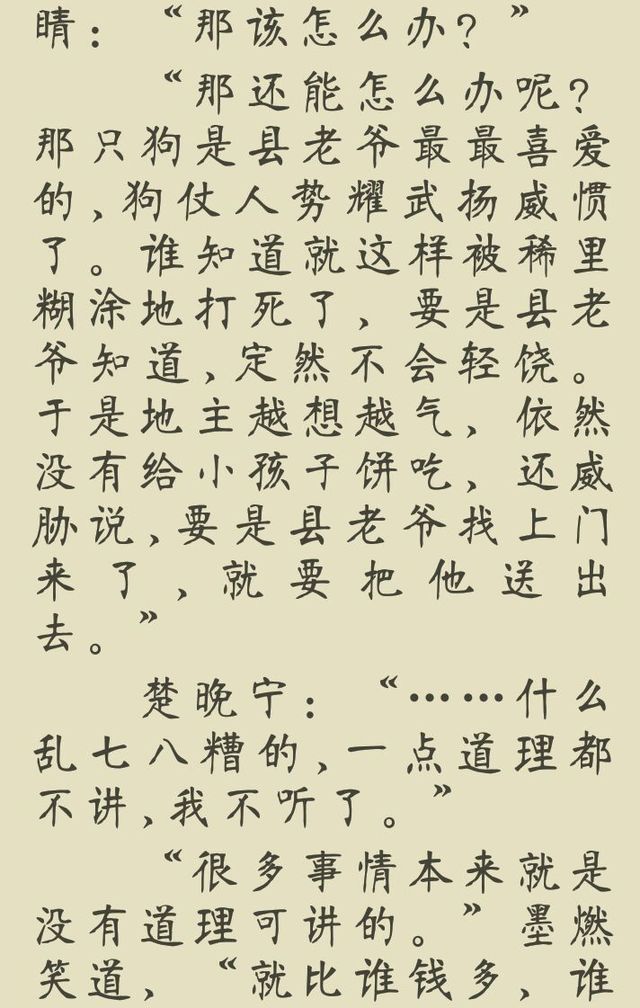 睛：“那该怎么办？”
“那还能怎么办呢？
那只狗是县老爷最最喜爱
的，狗仗人势耀武扬威惯
了。谁知道就这样被稀里
糊涂地打死了，要是县老
爷知道，定然不会轻饶。
于是地主越想越气，依然
没有给小孩子饼吃，还威
胁说，要是县老爷找上门
来了，就要把他送出
去。”
楚晚宁：“……什么
乱七八糟的，一点道理都
不讲，我不听了。”
“很多事情本来就是
没有道理可讲的。”墨燃
笑道，“就比谁钱多，谁